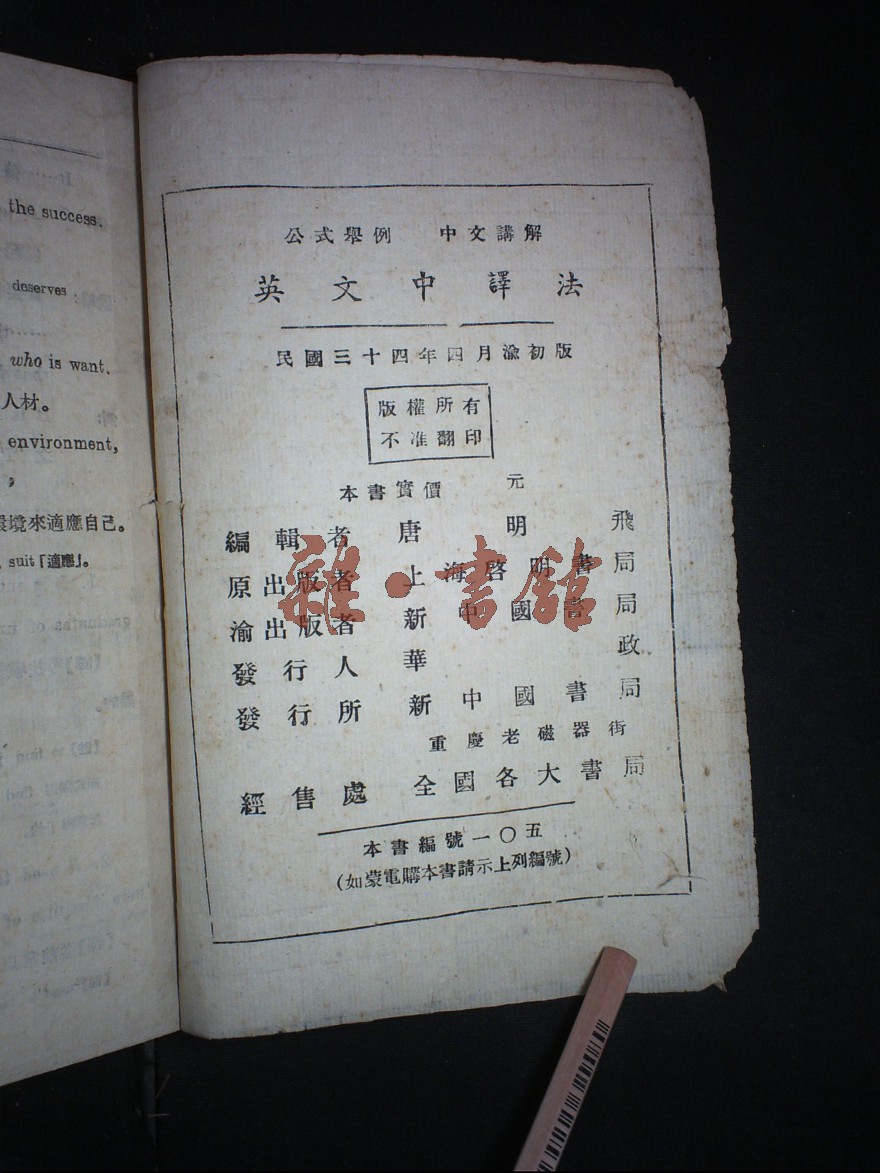 the success.
deserves
who is want.
人材。
environment,
環境來適應自己。
suit「適應」。
公式舉例 中文講解
英文中譯法
民國三十四年四月渝初版
版權所有
不准翻印
本書實價 元
編輯者 唐明飛
原出版者 上海啓明書局
渝出版者 新中國書局
發行人 華政
發行所 新中國書局
重慶老磁器街
經售處 全國各大書局
本書編號一〇五
(如蒙電購本書請示上列編號)
雜·書館